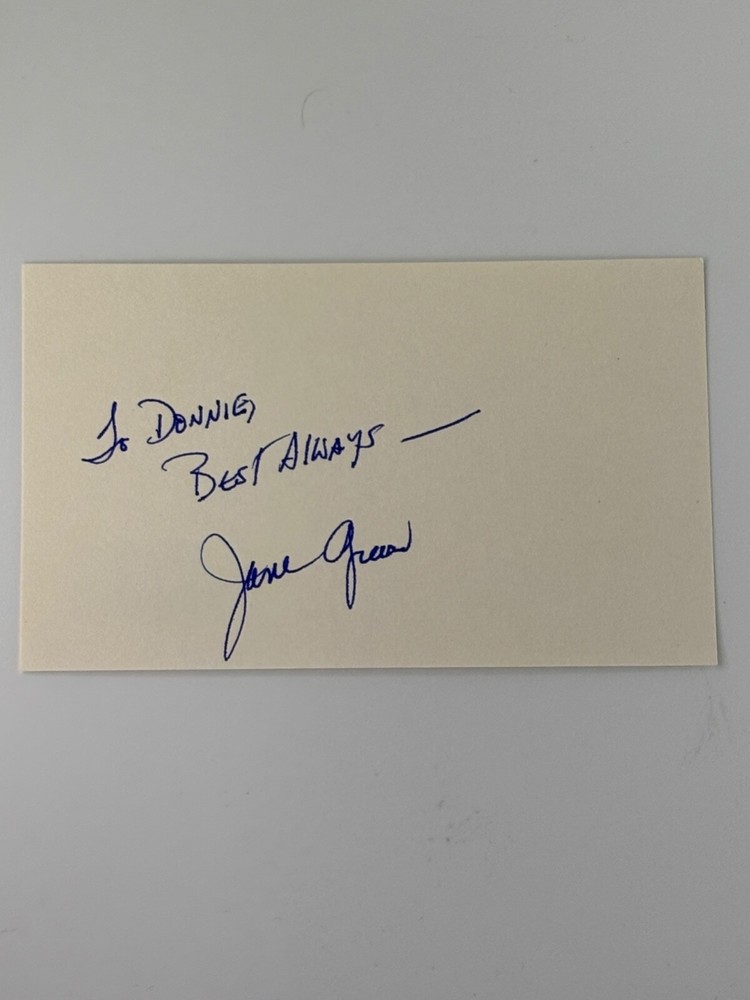 To DONNIE,
BEST AlWAYS —
Jane Greer